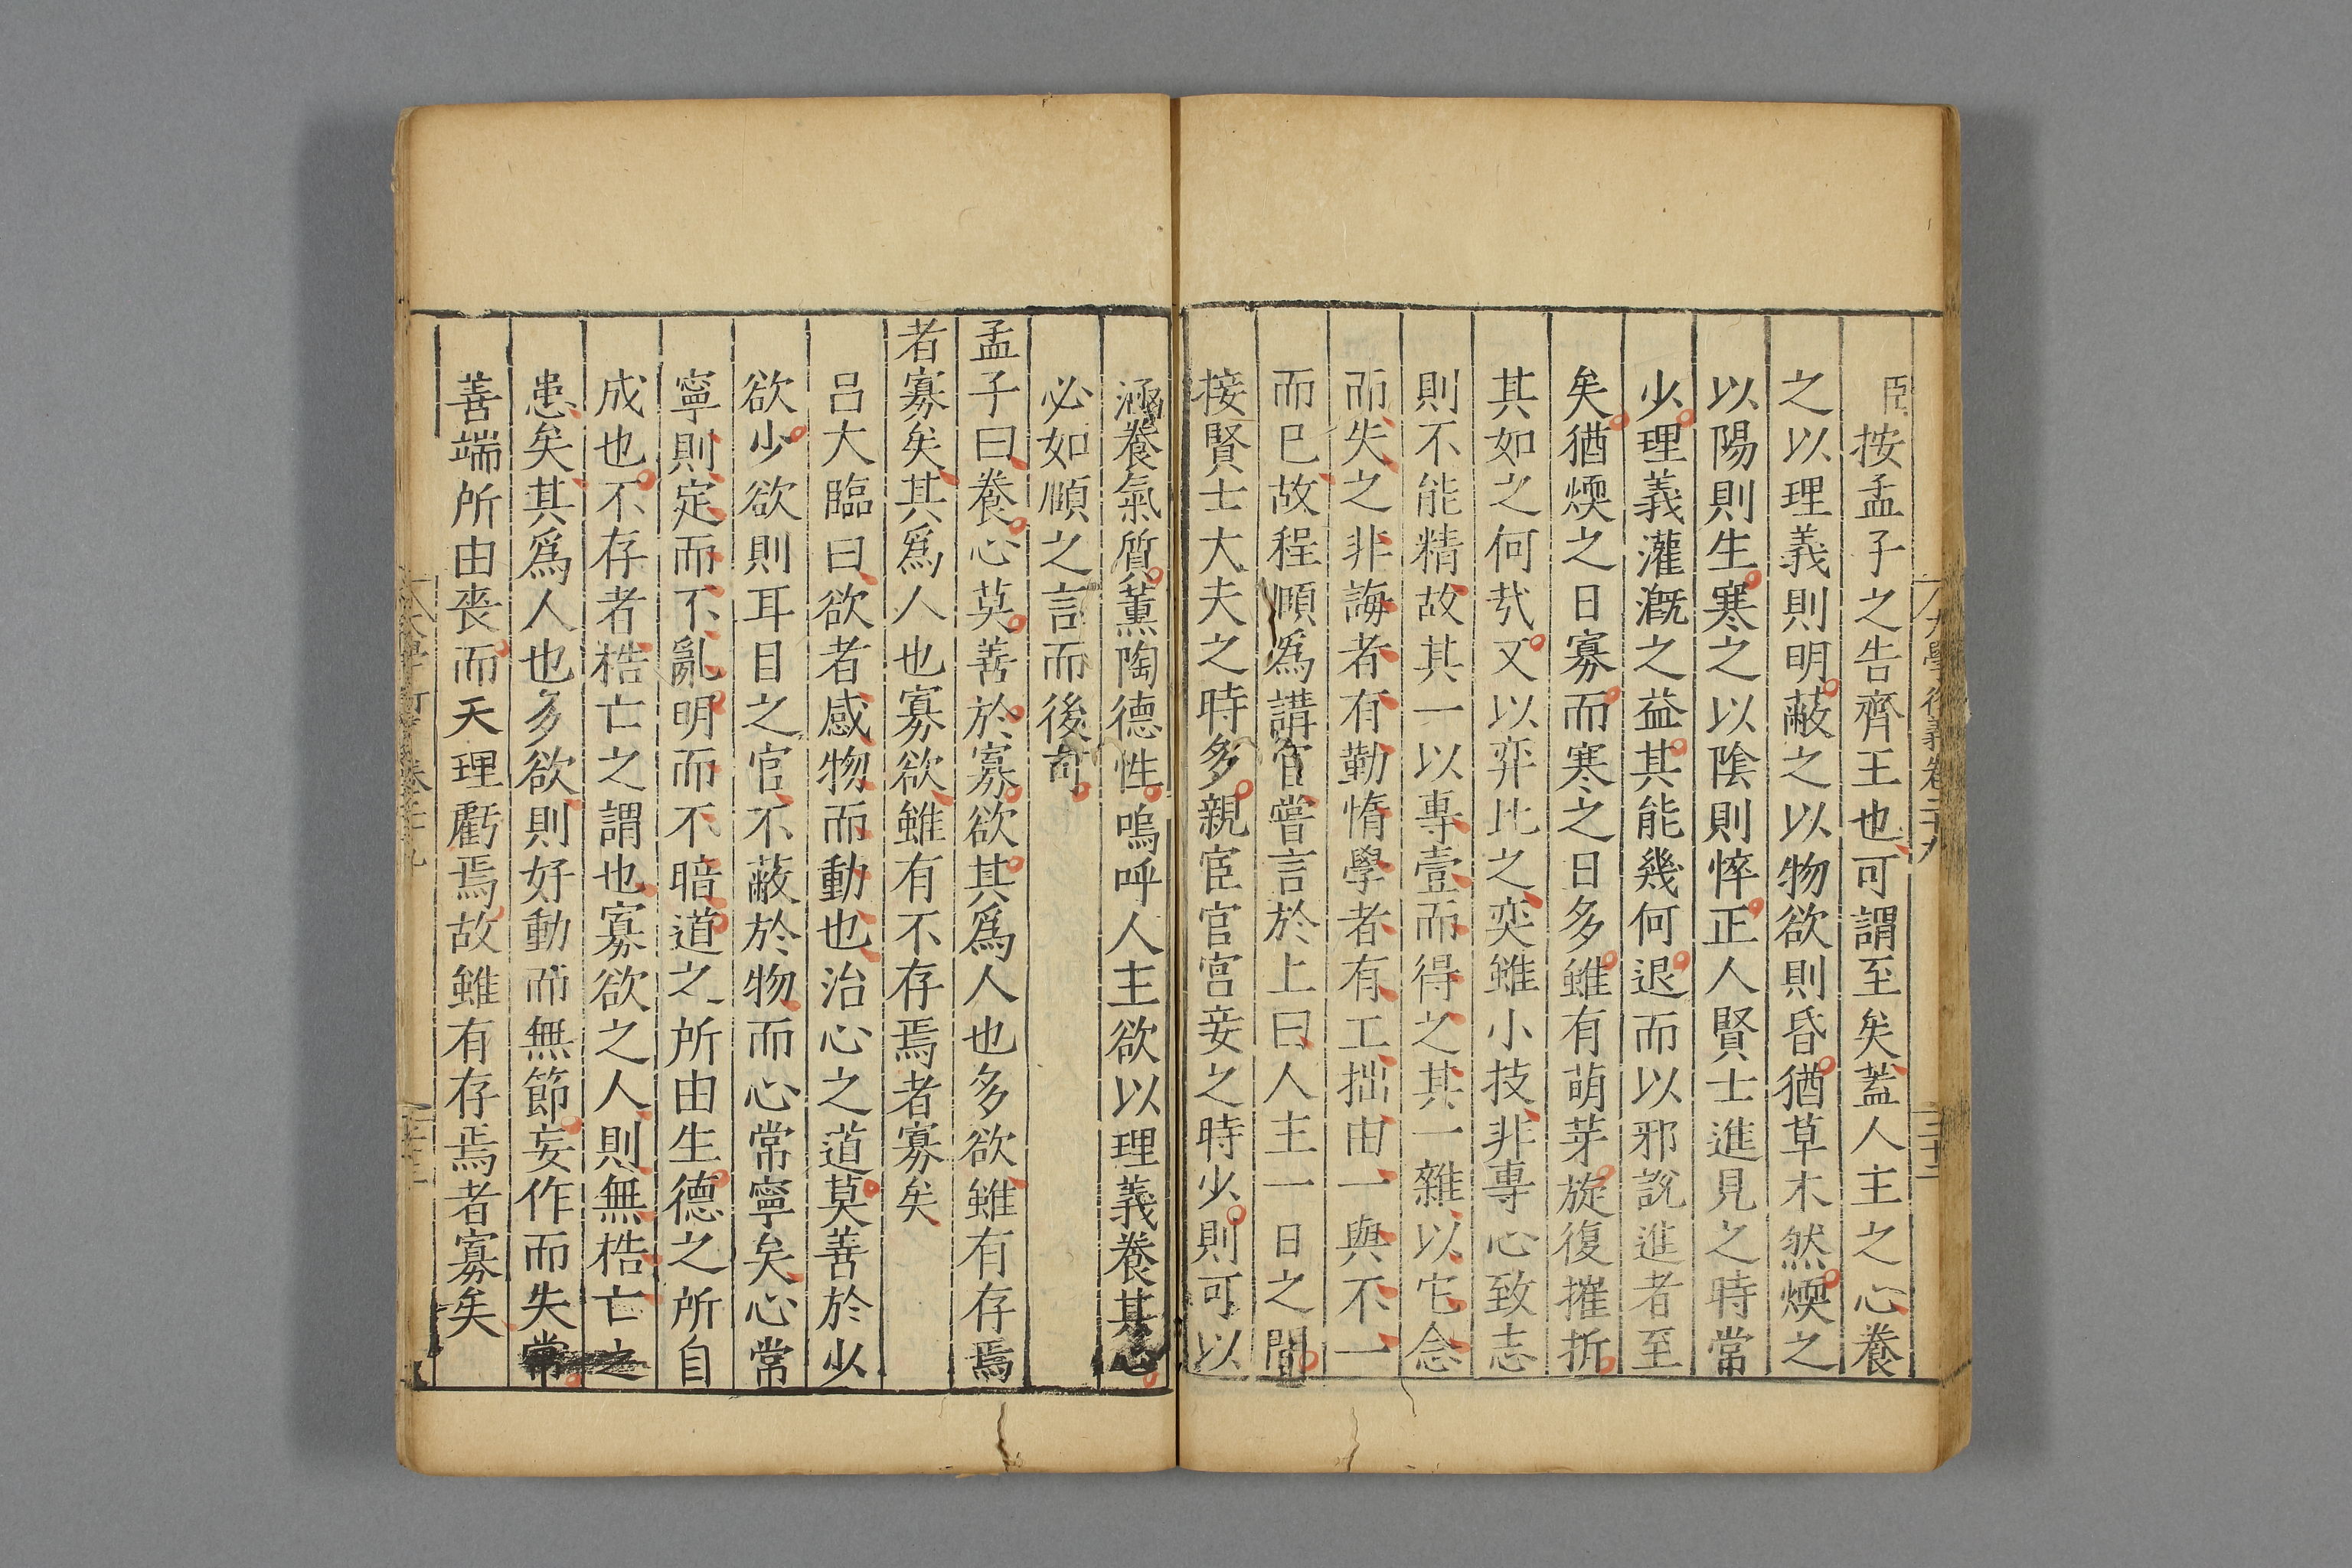 臣按孟子之告齊王也可謂至矣蓋人主之心養
之以理義則明蔽之以物欲則昏猶草木然煗之
以陽則生寒之以陰則悴正人賢士進見之時常
少理義灌溉之益其能幾何退而以邪說進者至
矣猶煗之日寡而寒之日多雖有萌芽旋復摧折
其如之何哉又以弈比之奕雖小技非專心致志
則不能精故其一以專壹而得之其一雜以它念
而失之非誨者有勤惰學者有工拙由一與不一
而已故程頤爲講官嘗言於上曰人主一日之間
接賢士大夫之時多親宦官宮妾之時少則可以
涵養氣質薰陶德性嗚呼人主欲以理義養其心
必如頤之言而後可
孟子曰養心莫善於寡欲其爲人也多欲雖有存焉
者寡矣其爲人也寡欲雖有不存焉者寡矣
呂大臨曰欲者感物而動也治心之道莫善於少
欲少欲則耳目之官不蔽於物而心常寧矣心常
寧則定而不亂明而不暗道之所由生德之所自
成也不存者梏亡之謂也寡欲之人則無梏亡之
患矣其爲人也多欲則好動而無節妄作而失常
善端所由喪而天理虧焉故雖有存焉者寡矣